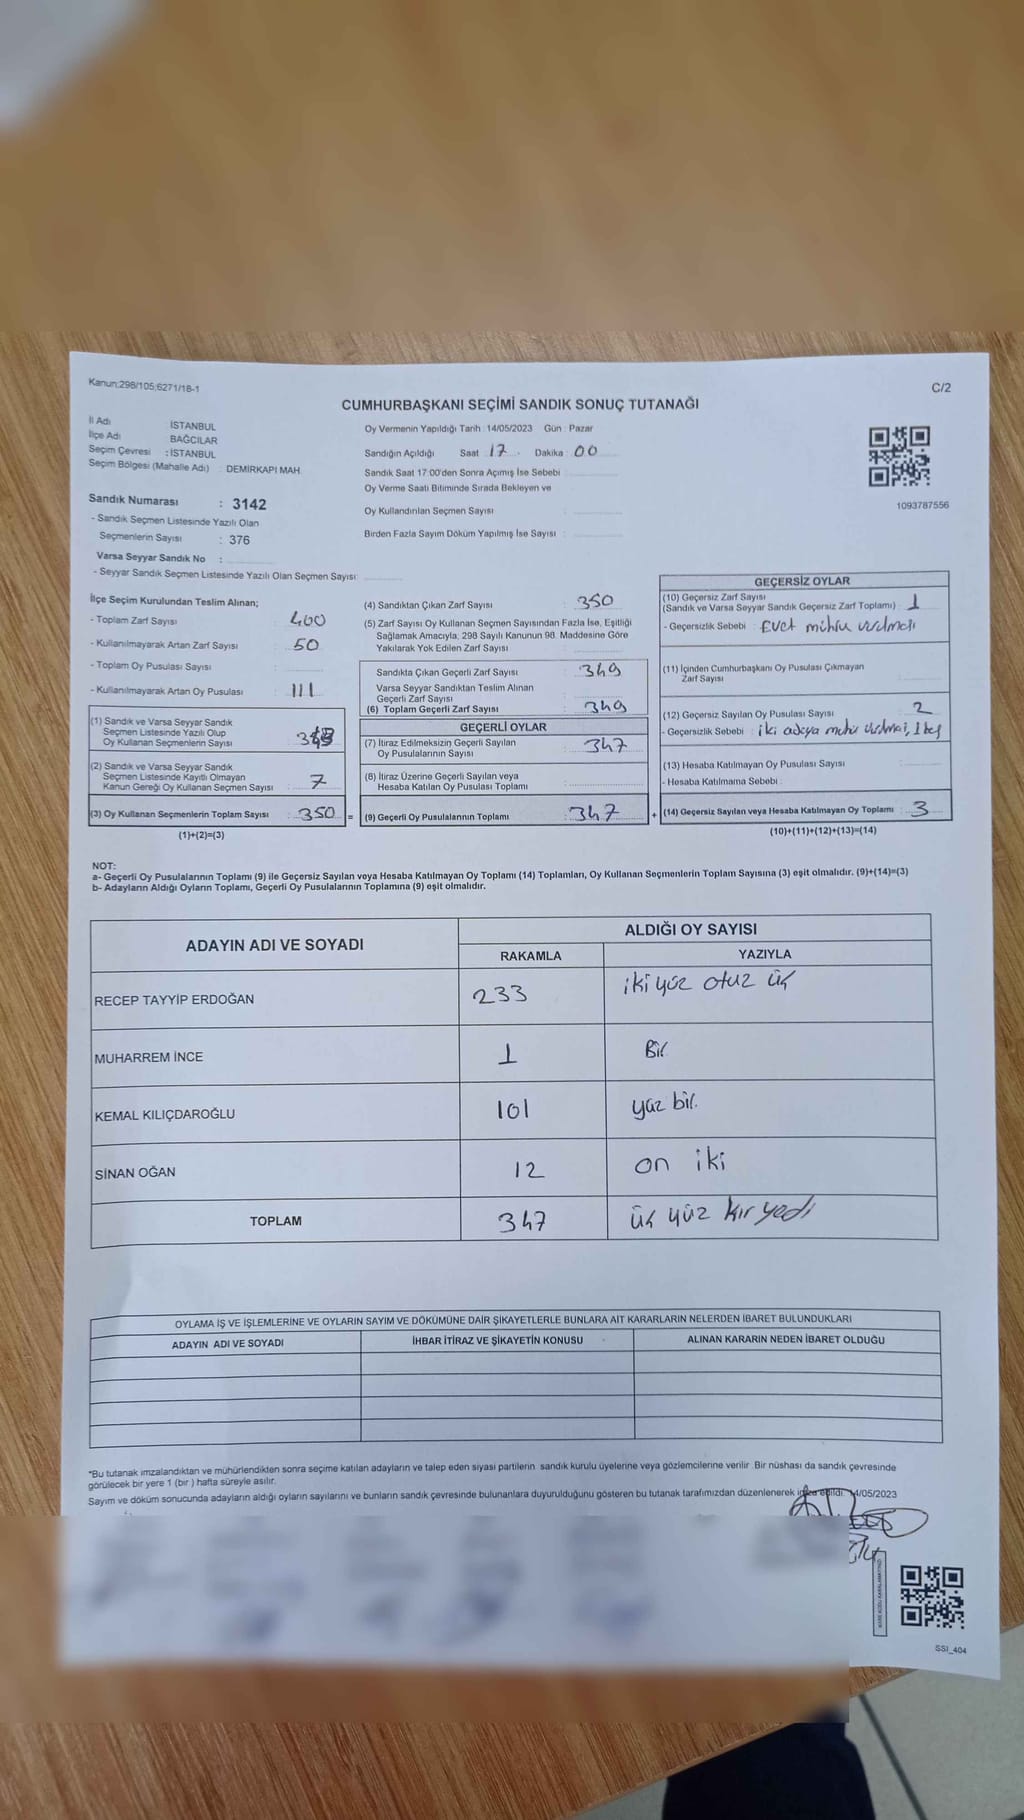 Kanun;298/105;6271/18-1
C/2
CUMHURBAŞKANI SEÇİMİ SANDIK SONUÇ TUTANAĞI
İl Adı İSTANBUL
İlçe Adı BAĞCILAR
Seçim Çevresi : İSTANBUL
Seçim Bölgesi (Mahalle Adı) : DEMİRKAPI MAH.
Sandık Numarası : 3142
- Sandık Seçmen Listesinde Yazılı Olan
Seçmenlerin Sayısı : 376
Varsa Seyyar Sandık No :
- Seyyar Sandık Seçmen Listesinde Yazılı Olan Seçmen Sayısı:
Oy Vermenin Yapıldığı Tarih : 14/05/2023 Gün : Pazar
Sandığın Açıldığı Saat : 17 Dakika : 00
Sandık Saat 17:00'den Sonra Açımış İse Sebebi
Oy Verme Saati Bitiminde Sırada Bekleyen ve
Oy Kullandırılan Seçmen Sayısı :
Birden Fazla Sayım Döküm Yapılmış İse Sayısı :
1093787556
İlçe Seçim Kurulundan Teslim Alınan;
- Toplam Zarf Sayısı : 400
- Kullanılmayarak Artan Zarf Sayısı : 50
- Toplam Oy Pusulası Sayısı :
- Kullanılmayarak Artan Oy Pusulası : 111
(1) Sandık ve Varsa Seyyar Sandık
Seçmen Listesinde Yazılı Olup
Oy Kullanan Seçmenlerin Sayısı
(2) Sandık ve Varsa Seyyar Sandık
Seçmen Listesinde Kayıtlı Olmayan
Kanun Gereği Oy Kullanan Seçmen Sayısı : 7
(3) Oy Kullanan Seçmenlerin Toplam Sayısı : 350 =
(1)+(2)=(3)
(4) Sandıktan Çıkan Zarf Sayısı : 350
(5) Zarf Sayısı Oy Kullanan Seçmen Sayısından Fazla İse, Eşitliği
Sağlamak Amacıyla; 298 Sayılı Kanunun 98. Maddesine Göre
Yakılarak Yok Edilen Zarf Sayısı :
Sandıkta Çıkan Geçerli Zarf Sayısı : 349
Varsa Seyyar Sandıktan Teslim Alınan
Geçerli Zarf Sayısı :
(6) Toplam Geçerli Zarf Sayısı : 349
GEÇERLİ OYLAR
(7) İtiraz Edilmeksizin Geçerli Sayılan
Oy Pusulalarının Sayısı : 347
(8) İtiraz Üzerine Geçerli Sayılan veya
Hesaba Katılan Oy Pusulası Toplamı :
(9) Geçerli Oy Pusulalarının Toplamı : 347 +
GEÇERSİZ OYLAR
(10) Geçersiz Zarf Sayısı
(Sandık ve Varsa Seyyar Sandık Geçersiz Zarf Toplamı) : 1
- Geçersizlik Sebebi : Evet mührü vurulmadı
(11) İçinden Cumhurbaşkanı Oy Pusulası Çıkmayan
Zarf Sayısı :
(12) Geçersiz Sayılan Oy Pusulası Sayısı : 2
- Geçersizlik Sebebi : iki adaya mühü
(13) Hesaba Katılmayan Oy Pusulası Sayısı :
- Hesaba Katılmama Sebebi :
(14) Geçersiz Sayılan veya Hesaba Katılmayan Oy Toplamı : 3
(10)+(11)+(12)+(13)=(14)
NOT:
a- Geçerli Oy Pusulalarının Toplamı (9) ile Geçersiz Sayılan veya Hesaba Katılmayan Oy Toplamı (14) Toplamları, Oy Kullanan Seçmenlerin Toplam Sayısına (3) eşit olmalıdır. (9)+(14)=(3)
b- Adayların Aldığı Oyların Toplamı, Geçerli Oy Pusulalarının Toplamına (9) eşit olmalıdır.
ADAYIN ADI VE SOYADI
ALDIĞI OY SAYISI
RAKAMLA YAZIYLA
RECEP TAYYİP ERDOĞAN 233 iki yüz otuz üç
MUHARREM İNCE 1 Bir
KEMAL KILIÇDAROĞLU 101 yüz bir.
SİNAN OĞAN 12 on iki
TOPLAM 347 üç yüz kır yedi
OYLAMA İŞ VE İŞLEMLERİNE VE OYLARIN SAYIM VE DÖKÜMÜNE DAİR ŞİKAYETLERLE BUNLARA AİT KARARLARIN NELERDEN İBARET BULUNDUKLARI
ADAYIN ADI VE SOYADI İHBAR İTİRAZ VE ŞİKAYETİN KONUSU ALINAN KARARIN NEDEN İBARET OLDUĞU
*Bu tutanak imzalandıktan ve mühürlendikten sonra seçime katılan adayların ve talep eden siyasi partilerin sandık kurulu üyelerine veya gözlemcilerine verilir. Bir nüshası da sandık çevresinde
görülecek bir yere 1 (bir ) hafta süreyle asılır.
Sayım ve döküm sonucunda adayların aldığı oyların sayılarını ve bunların sandık çevresinde bulunanlara duyurulduğunu gösteren bu tutanak tarafımızdan düzenlenerek imza edildi. 14/05/2023
SSI_404